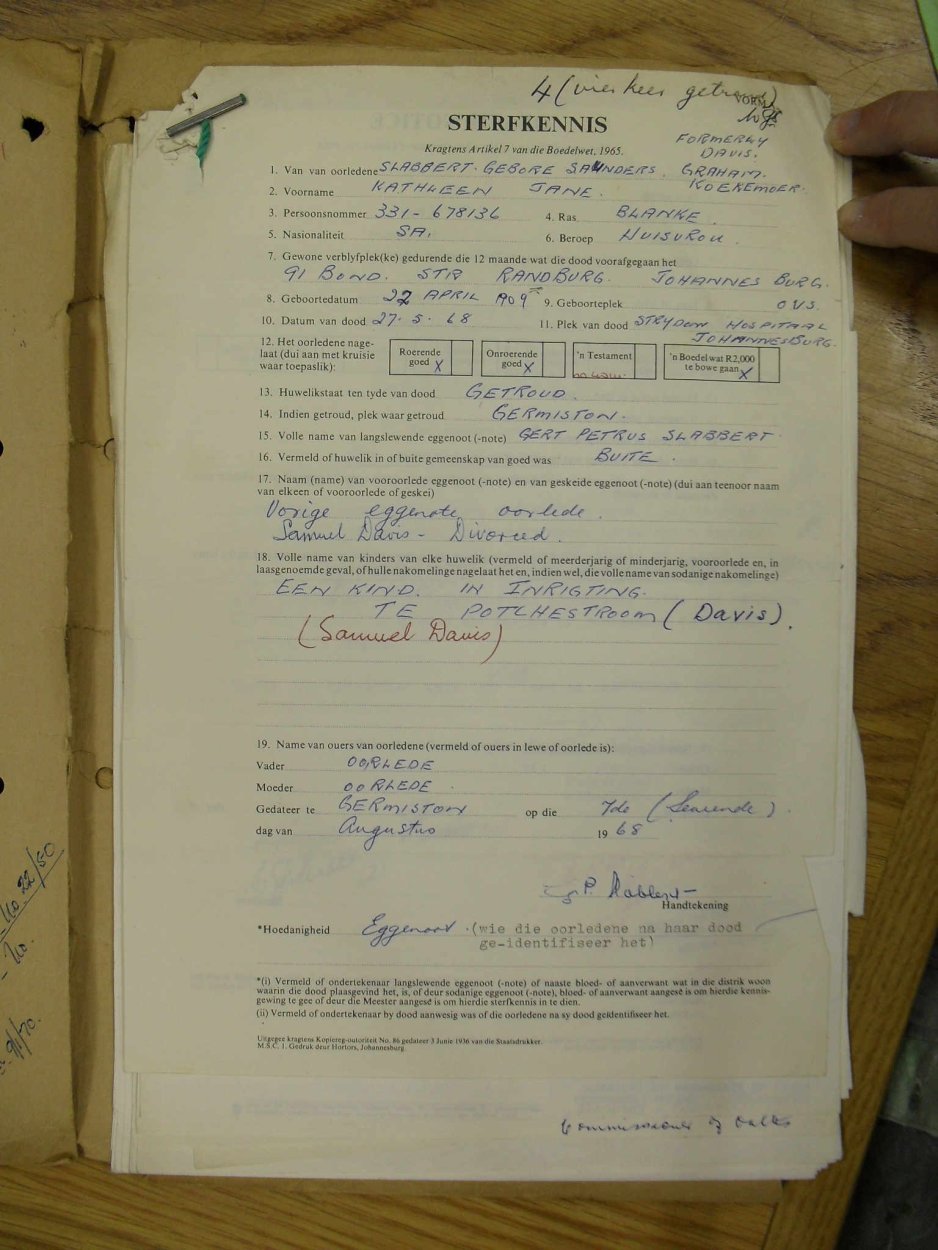 4 (vier keer getroud)
VORM
STERFKENNIS
Kragtens Artikel 7 van die Boedelwet, 1965.
FORMERLY
DAVIS.
1. Van van oorledene SLABBERT. GEBORE SAUNDERS. GRAHAM.
KOEKEMOER.
2. Voorname KATHLEEN JANE.
3. Persoonsnommer 331-678136 4. Ras BLANKE.
5. Nasionaliteit SA. 6. Beroep HUISVROU.
7. Gewone verblyfplek(ke) gedurende die 12 maande wat die dood voorafgegaan het
91 BOND. STR RANDBURG. JOHANNESBURG.
8. Geboortedatum 27 APRIL 1909 9. Geboorteplek O.V.S.
10. Datum van dood 27.5.68 11. Plek van dood STRYDOM HOSPITAAL
JOHANNESBURG.
12. Het oorledene nage-
laat (dui aan met kruisie
waar toepaslik):
Roerende
goed X
Onroerende
goed X
'n Testament
'n Boedel wat R2,000
te bowe gaan X
13. Huwelikstaat ten tyde van dood GETROUD.
14. Indien getroud, plek waar getroud GERMISTON.
15. Volle name van langslewende eggenoot (-note) GERT PETRUS SLABBERT
16. Vermeld of huwelik in of buite gemeenskap van goed was BUITE.
17. Naam (name) van vooroorlede eggenoot (-note) en van geskeide eggenoot (-note) (dui aan teenoor naam
van elkeen of vooroorlede of geskei)
Vorige eggenote oorlede.
Samuel Davis - Divorced.
18. Volle name van kinders van elke huwelik (vermeld of meerderjarig of minderjarig, vooroorlede en, in
laasgenoemde geval, of hulle nakomelinge nagelaat het en, indien wel, die volle name van sodanige nakomelinge)
EEN KIND. IN INRIGTING.
TE POTCHESTROOM (Davis).
(Samuel Davis)
19. Name van ouers van oorledene (vermeld of ouers in lewe of oorlede is):
Vader OORLEDE
Moeder OORLEDE.
Gedateer te GERMISTON op die 7de (Sewende)
dag van Augustus 1968
Handtekening
*Hoedanigheid Eggenoot. (wie die oorledene na haar dood
ge-identifiseer het)
*(i) Vermeld of ondertekenaar langslewende eggenoot (-note) of naaste bloed- of aanverwant wat in die distrik woon
waarin die dood plaasgevind het, is, of deur sodanige eggenoot (-note), bloed- of aanverwant aangesê is om hierdie kennis-
gewing te gee of deur die Meester aangesê is om hierdie sterfkennis in te dien.
(ii) Vermeld of ondertekenaar by dood aanwesig was of die oorledene na sy dood geïdentifiseer het.
Uitgegee kragtens Kopiereg-outoriteit No. 86 gedateer 3 Junie 1936 van die Staatsdrukker.
M.S.C. 1. Gedruk deur Hortors, Johannesburg.
Commissioner of Oaths
No 22/50